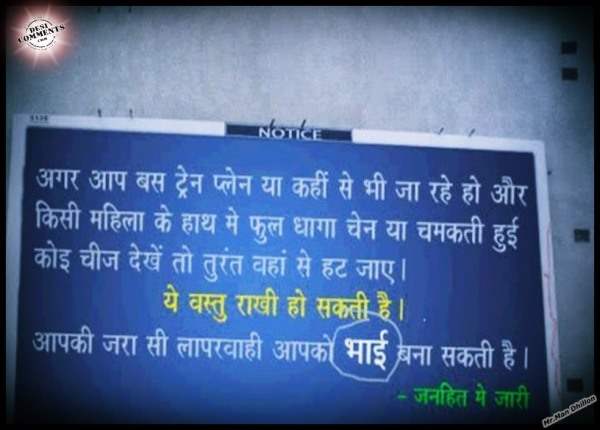 DESI
COMMENTS
.COM
NOTICE
अगर आप बस ट्रेन प्लेन या कहीं से भी जा रहे हो और
किसी महिला के हाथ मे फुल धागा चेन या चमकती हुई
कोइ चीज देखें तो तुरंत वहां से हट जाए।
ये वस्तु राखी हो सकती है।
आपकी जरा सी लापरवाही आपको भाई बना सकती है।
- जनहित मे जारी
Mr.Man Dhillon